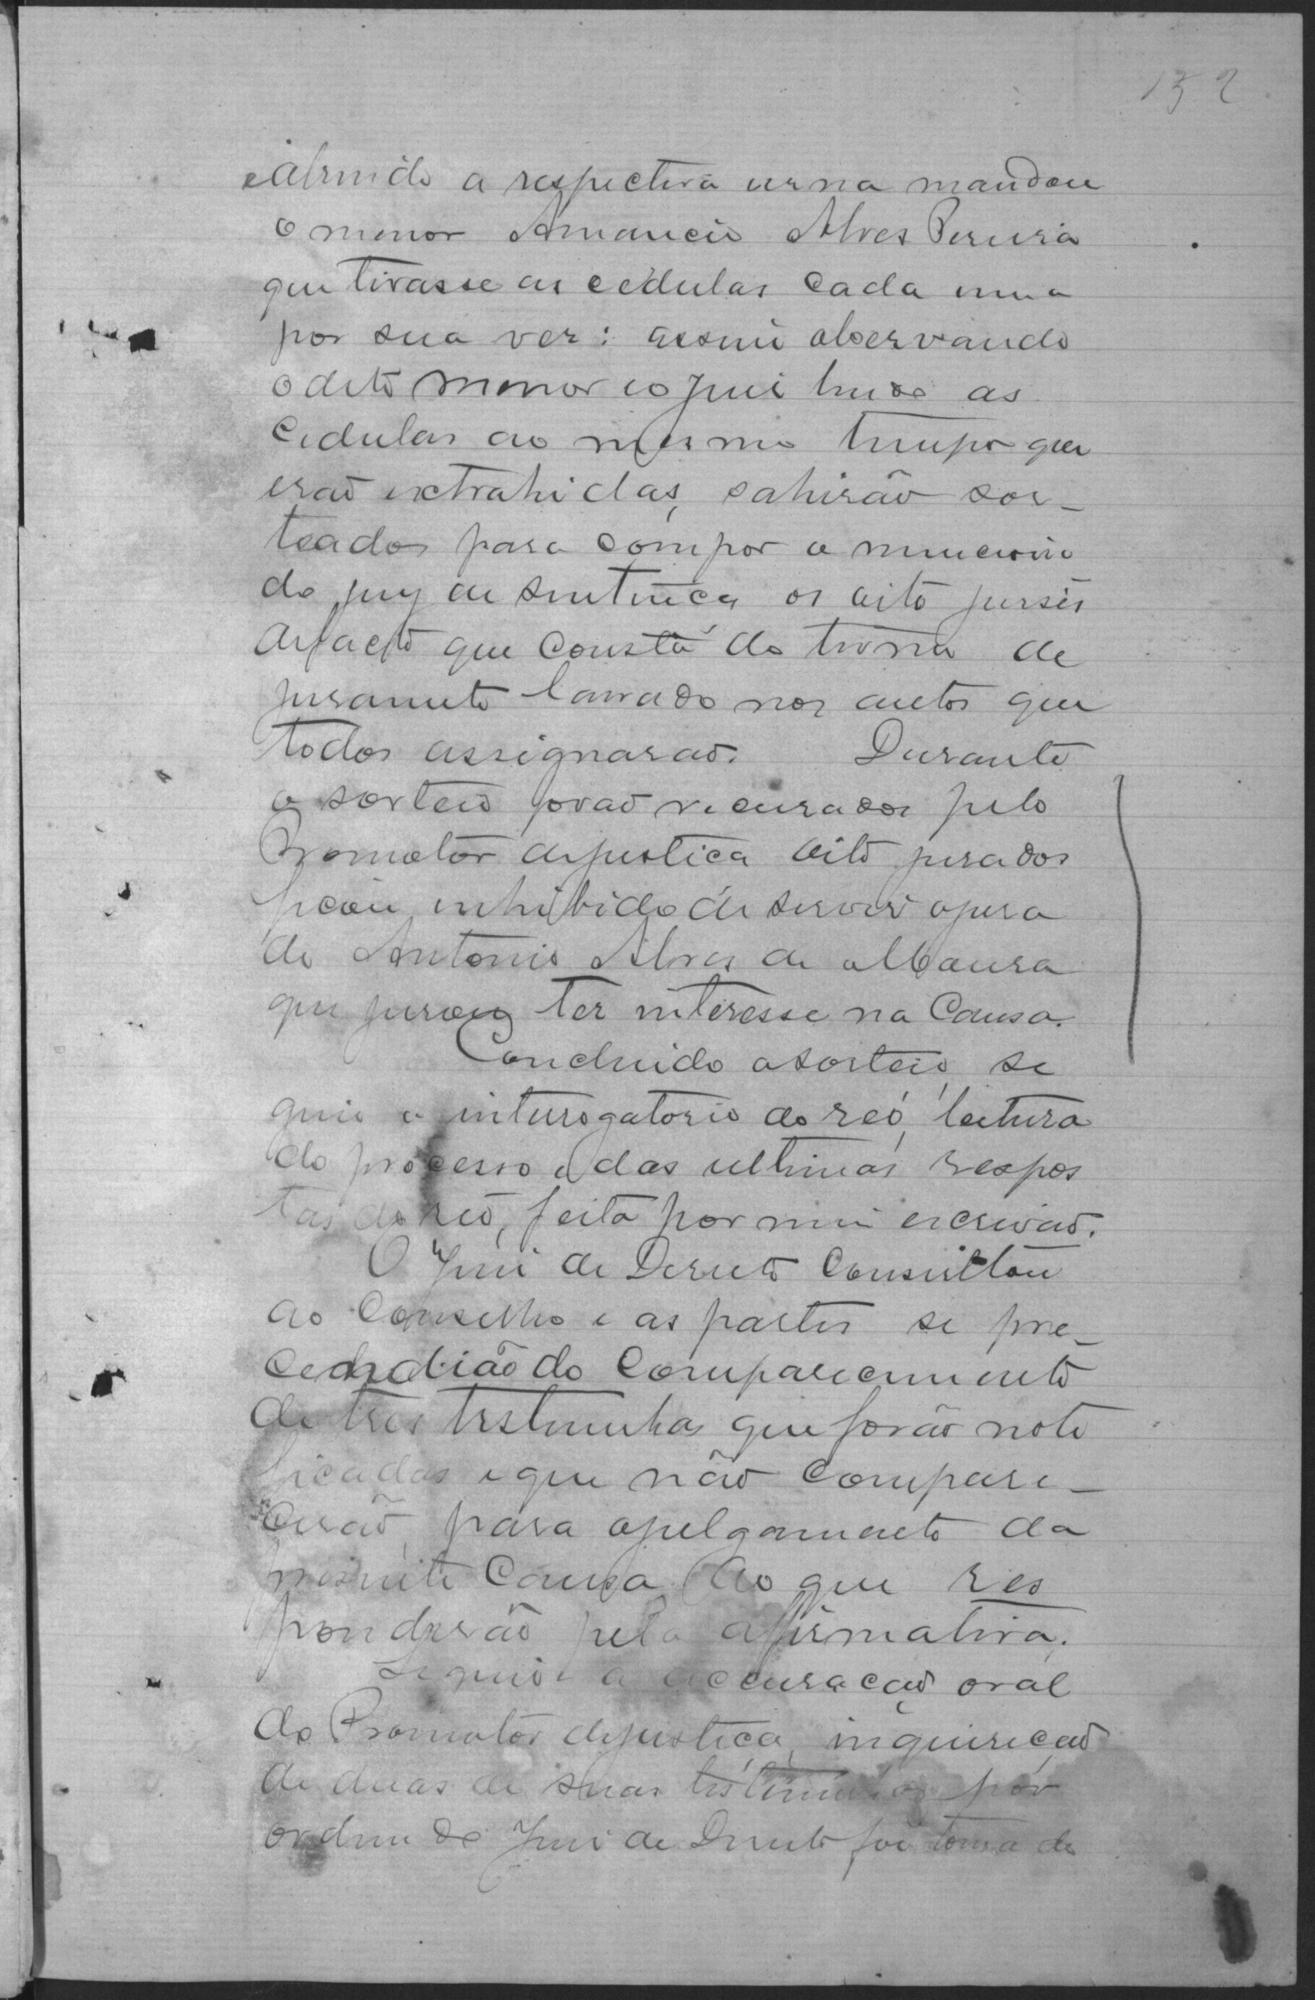 152
e abrindo a respectiva urna mandou
o menor Amancio Alves Pereira
que tirasse as cedulas cada uma
por sua vez: assim observando
o dito menor e o Juiz lendo as
cedulas ao mesmo tempo que
erão extrahidas, sahirão sor-
teados para compor o numero
do jury de sentença os oito
que consta do termo de
juramento lavrado nos autos que
todos assignarão. Durante
o sorteio forão recusados pelo
Promotor de justiça oito jurados
ficou inhibido de servir o jura
do Antonio Alves de Moura
que jurou ter interesse na Causa.
Concluido o sorteio, se
guio o interrogatorio do reó, leitura
do processo e das ultimas respos
tas do reó, feita por mim escrivão.
O Juiz de Direito Consultou
ao Conselho e as partes se pre-
cindião do Comparecimento
de tres testemunhas que forão noti
ficadas e que não compare-
cerão, para o julgamento da
presente Causa Ao que res
ponderão pela afirmativa.
Seguio a accusação oral
do Promotor de justiça, inquirição
de duas de suas testemunhas por
ordem do Juiz de Direito foi toma do